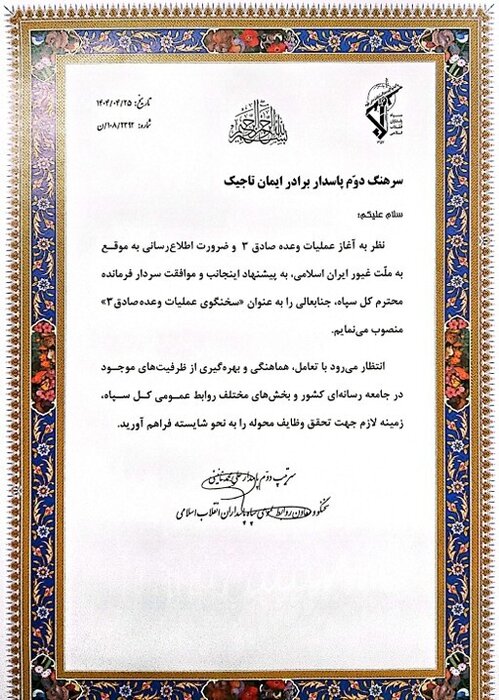 تاریخ: ۱۴۰۴/۰۴/۲۵
شماره: ۱۰۸/۲۳۹۲/ن
بسم الله الرحمن الرحیم
سپاه
پاسداران
انقلاب
اسلامی
سرهنگ دوّم پاسدار برادر ایمان تاجیک
سلام علیکم؛
نظر به آغاز عملیات وعده صادق ۳ و ضرورت اطلاع‌رسانی به موقع
به ملّت غیور ایران اسلامی، به پیشنهاد اینجانب و موافقت سردار فرمانده
محترم کل سپاه، جنابعالی را به عنوان «سخنگوی عملیات وعده صادق ۳»
منصوب می‌نمایم.
انتظار می‌رود با تعامل، هماهنگی و بهره‌گیری از ظرفیت‌های موجود
در جامعه رسانه‌ای کشور و بخش‌های مختلف روابط عمومی کل سپاه،
زمینه لازم جهت تحقق وظایف محوله را به نحو شایسته فراهم آورید.
سرتیپ دوّم پاسدار علی محمد نائینی
سخنگو و معاون روابط عمومی سپاه پاسداران انقلاب اسلامی